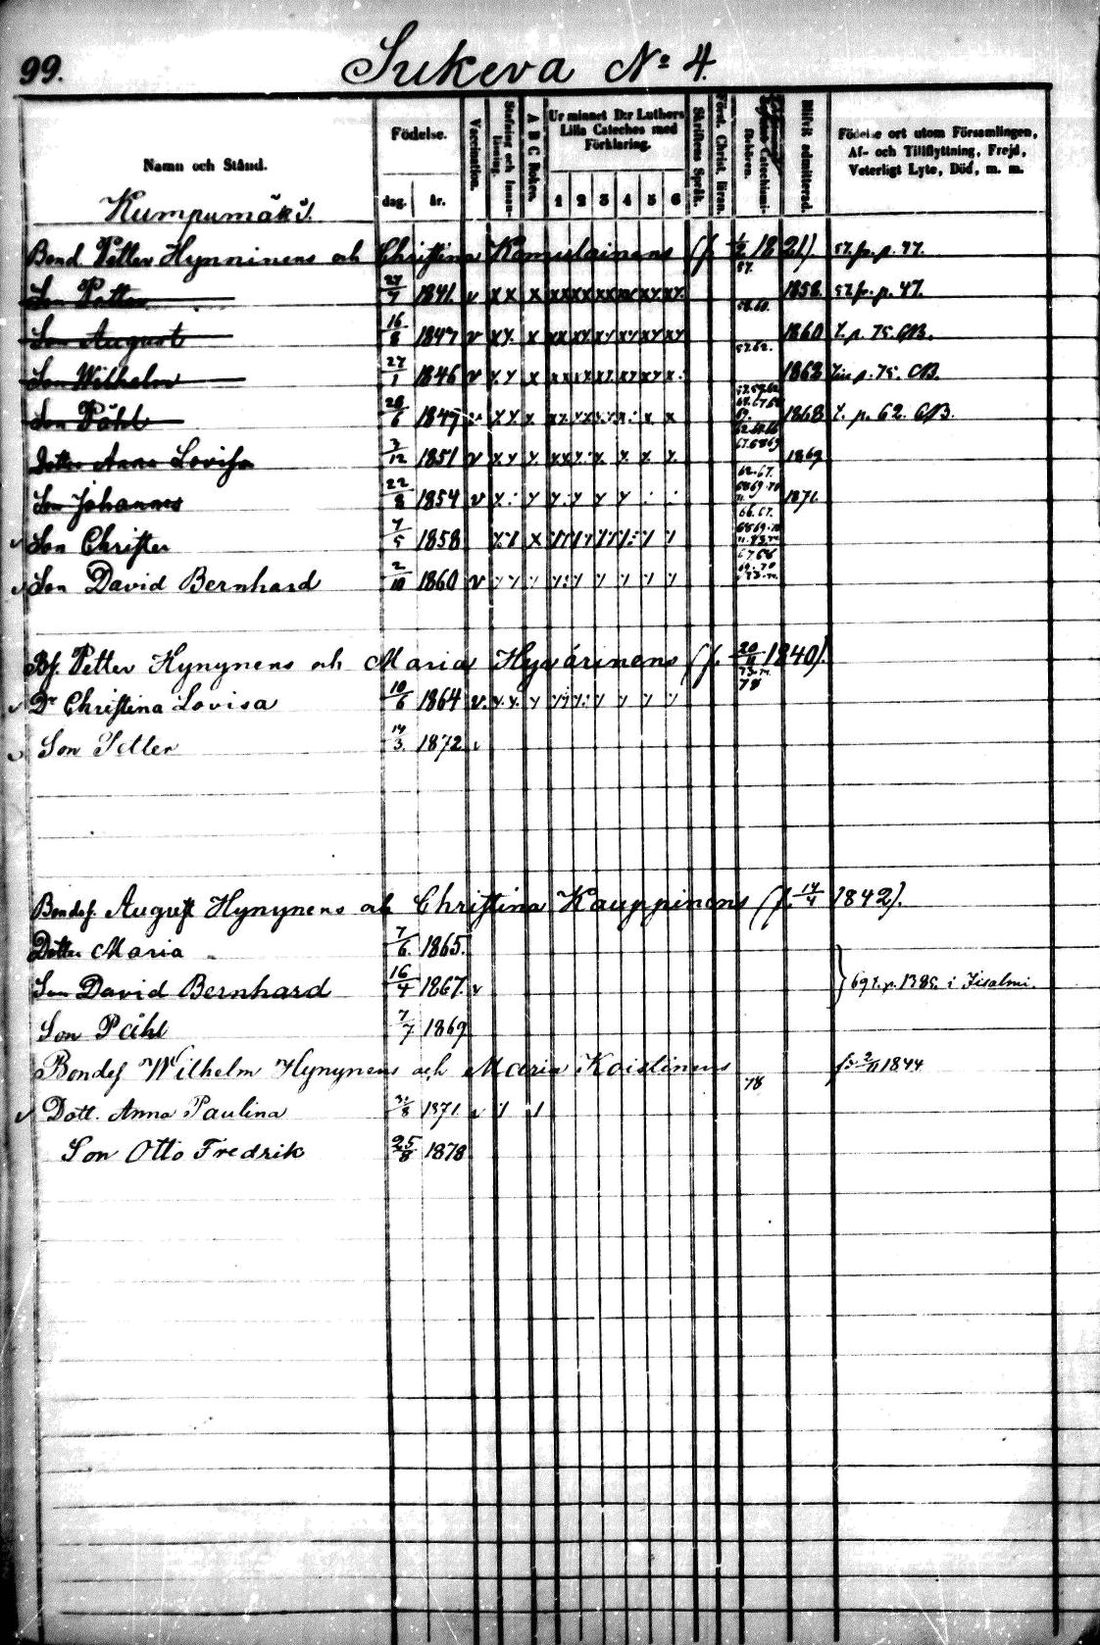 99. Sukeva No 4.
Namn och Stånd.
Födelse.
dag. år.
Vaccination.
Stafning och Innanläsning.
A B C Boken.
Ur minnet D:r Luthers Lilla Cateches med Förklaring.
1 2 3 4 5 6
Skriftens Språk.
Först. Christ. läran.
Blifvit admitterad.
Födelse ort utom Församlingen, Af- och Tillflyttning, Frejd, Veterligt Lyte, Död, m. m.
Kumpumäki.
Bond Petter Hynninens och Christina Komulainens (f. 1/2 1821). 57. fr. p. 47.
Son Petter 27/7 1841. v x x x 1858. 57. fr. p. 47.
Son August 16/8 1847 v x x. x 58.60. 1860 t. p. 75. CB.
Son Wilhelm 27/1 1846 v x x x 57 62. 1863 p. 75. CB.
Son Påhl 28/6 1847 1868 t. p. 62. CB.
Dotter Anna Lovisa 3/12 1851 v 1869
Son Johannes 22/8 1854 v 1871.
Son Christer 7/5 1858
Son David Bernhard 2/10 1860 v
Bs. Petter Hynynens och Maria Hyvärinens (f. 20/11 1840).
Dr Christina Lovisa 10/6 1864 v. 78
Son Petter 14/3. 1872
Bondes. August Hynynens och Christina Kauppinens (f. 14/4 1842).
Dotter Maria 7/6. 1865.
Son David Bernhard 16/4 1867. v } 69 t. p. 1385. i Iisalmi.
Son Påhl 7/7 1869
Bondes Wilhelm Hynynens och Maria Koistinens f: 2/11 1844
Dott. Anna Paulina 1871. v 78
Son Otto Fredrik 25/8 1878